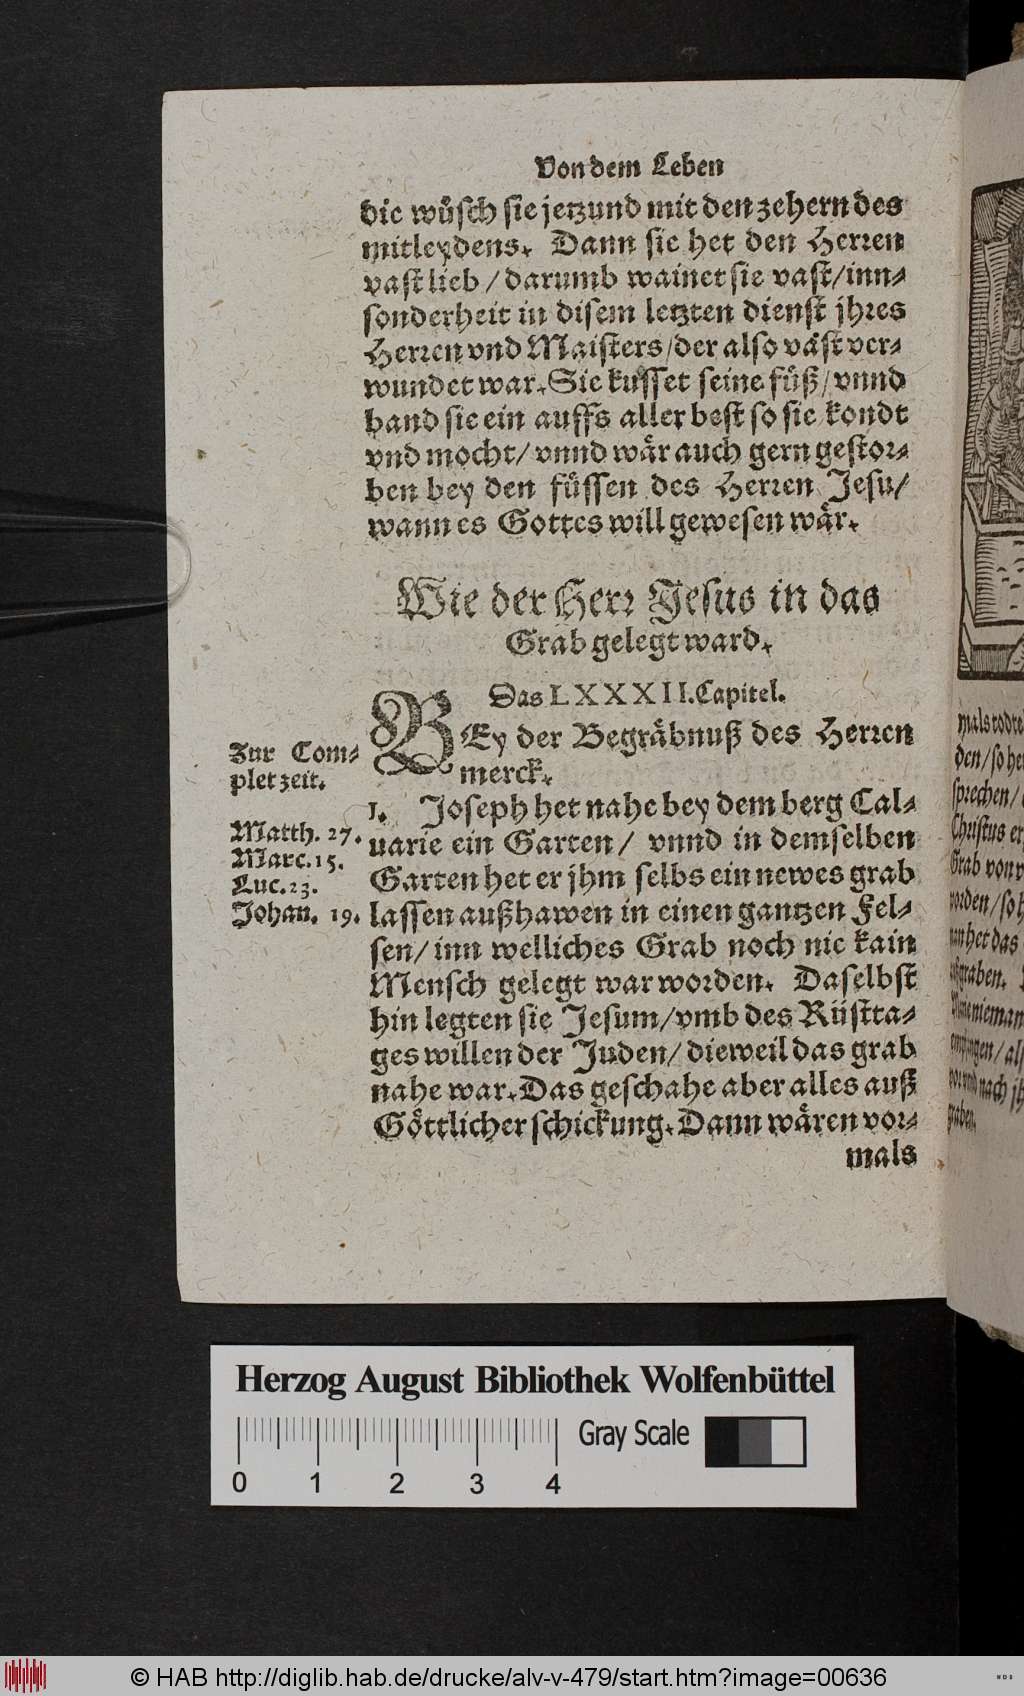 Von dem Leben
die wůsch sie jetzund mit den zehern des
mitleydens. Dann sie het den Herren
vast lieb / darumb wainet sie vast / inn-
sonderheit in disem letzten dienst jhres
Herren vnd Maisters / der also väst ver-
wundet war. Sie kusset seine füß / vnnd
band sie ein auffs aller best so sie kondt
vnd mocht / vnnd wär auch gern gestor-
ben bey den füssen des Herren Jesu /
wann es Gottes will gewesen wär.
Wie der Herr Jesus in das
Grab gelegt ward.
Das LXXXII. Capitel.
BEy der Begräbnuß des Herren
merck.
Zur Com-
plet zeit.
1. Joseph het nahe bey dem berg Cal-
uarie ein Garten / vnnd in demselben
Garten het er jhm selbs ein newes grab
lassen außhawen in einen gantzen Fel-
sen / inn welliches Grab noch nie kain
Mensch gelegt war worden. Daselbst
hin legten sie Jesum / vmb des Rüstta-
ges willen der Juden / dieweil das grab
nahe war. Das geschahe aber alles auß
Göttlicher schickung. Dann wären vor-
mals
Matth. 27.
Marc. 15.
Luc. 23.
Johan. 19.
mals
den / so
sprechen /
Christus
Grab von
worden / so
man het das
graben.
nieman
empfangen /
vor vnd nach
graben.
Herzog August Bibliothek Wolfenbüttel
Gray Scale
0 1 2 3 4
© HAB http://diglib.hab.de/drucke/alv-v-479/start.htm?image=00636